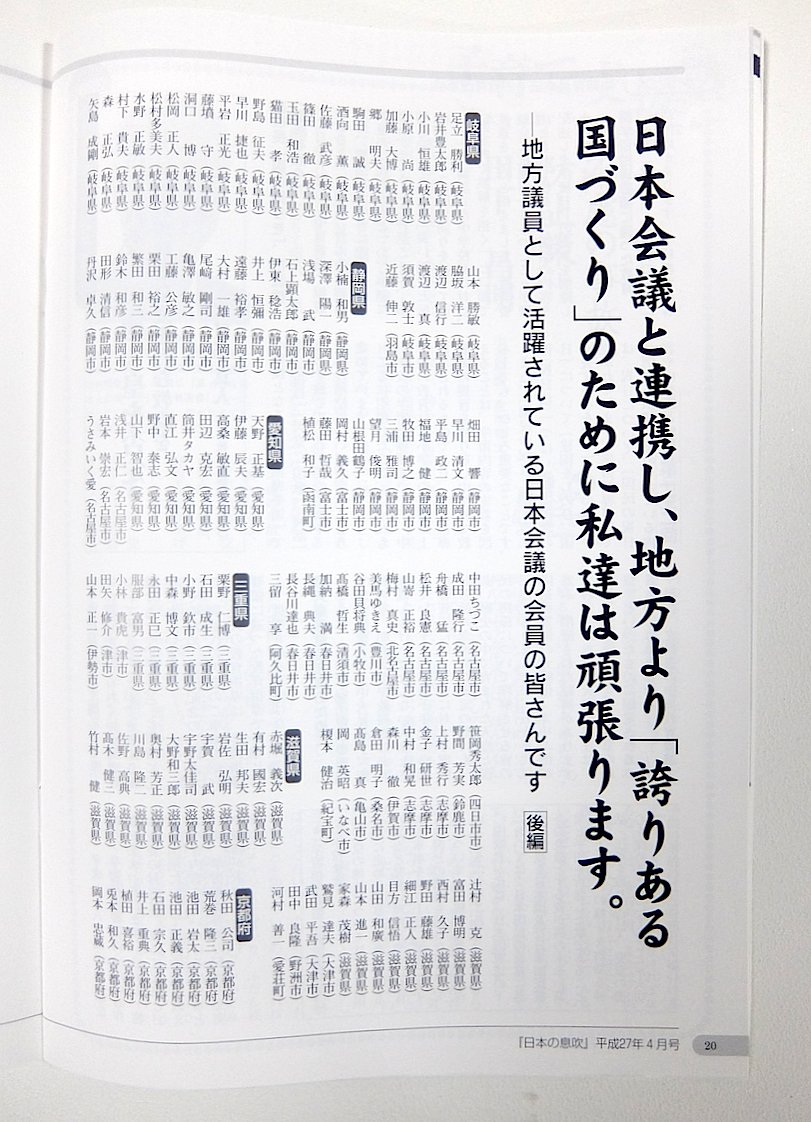 日本会議と連携し、地方より「誇りある
国づくり」のために私達は頑張ります。
―地方議員として活躍されている日本会議の会員の皆さんです 後編
岐阜県
足立 勝利（岐阜県）
岩井豊太郎（岐阜県）
小川 恒雄（岐阜県）
小原 尚（岐阜県）
加藤 大博（岐阜県）
郷 明夫（岐阜県）
駒田 誠（岐阜県）
酒向 薫（岐阜県）
佐藤 武彦（岐阜県）
篠田 徹（岐阜県）
玉田 和浩（岐阜県）
猫田 孝（岐阜県）
野島 征夫（岐阜県）
早川 捷也（岐阜県）
平岩 正光（岐阜県）
藤墳 守（岐阜県）
洞口 博（岐阜県）
松岡 正人（岐阜県）
松村多美夫（岐阜県）
水野 正敏（岐阜県）
村下 貴夫（岐阜県）
森 正弘（岐阜県）
矢島 成剛（岐阜県）
山本 勝敏（岐阜県）
脇坂 洋二（岐阜県）
渡辺 信行（岐阜県）
渡辺 真（岐阜県）
須賀 敦士（岐阜市）
近藤 伸二（羽島市）
静岡県
小楠 和男（静岡県）
深澤 陽一（静岡県）
浅場 武（静岡市）
石上顕太郎（静岡市）
伊東 稔浩（静岡市）
井上 恒彌（静岡市）
遠藤 裕孝（静岡市）
大村 一雄（静岡市）
尾崎 剛司（静岡市）
亀澤 敏之（静岡市）
工藤 公彦（静岡市）
栗田 裕之（静岡市）
繁田 和三（静岡市）
鈴木 和彦（静岡市）
田形 清信（静岡市）
丹沢 卓久（静岡市）
畑田 響（静岡市）
早川 清文（静岡市）
平島 政二（静岡市）
福地 健（静岡市）
牧田 博之（静岡市）
三浦 雅司（静岡市）
望月 俊明（静岡市）
山根田鶴子（静岡市）
岡村 義久（富士市）
藤田 哲哉（富士市）
植松 和子（函南町）
愛知県
天野 正基（愛知県）
伊藤 辰夫（愛知県）
高桑 敏直（愛知県）
田辺 克宏（愛知県）
筒井タカヤ（愛知県）
直江 弘文（愛知県）
野中 泰志（愛知県）
山下 智也（愛知県）
浅井 正仁（名古屋市）
岩本 崇宏（名古屋市）
うさみいく愛（名古屋市）
中田ちづこ（名古屋市）
成田 隆行（名古屋市）
舟橋 猛（名古屋市）
松井 良憲（名古屋市）
山嵜 正裕（名古屋市）
梅村 真史（北名古屋市）
美馬ゆきえ（豊川市）
谷田貝将典（小牧市）
髙橋 哲生（清須市）
加納 満（春日井市）
長縄 典夫（春日井市）
長谷川達也（春日井市）
三留 享（阿久比町）
三重県
粟野 仁博（三重県）
石田 成生（三重県）
小野 欽市（三重県）
中森 博文（三重県）
永田 正巳（三重県）
服部 富男（三重県）
小林 貴虎（津市）
田矢 修介（津市）
山本 正一（伊勢市）
笹岡秀太郎（四日市市）
野間 芳実（鈴鹿市）
上村 秀行（志摩市）
金子 研世（志摩市）
中村 和晃（志摩市）
森川 徹（伊賀市）
倉田 明子（桑名市）
髙島 真（亀山市）
岡 英昭（いなべ市）
榎本 健治（紀宝町）
滋賀県
赤堀 義次（滋賀県）
有村 國宏（滋賀県）
生田 邦夫（滋賀県）
岩佐 弘明（滋賀県）
宇賀 武（滋賀県）
宇野太佳司（滋賀県）
大野和三郎（滋賀県）
奥村 芳正（滋賀県）
川島 隆二（滋賀県）
佐野 高典（滋賀県）
髙木 健三（滋賀県）
竹村 健（滋賀県）
辻村 克（滋賀県）
富田 博明（滋賀県）
西村 久子（滋賀県）
野田 藤雄（滋賀県）
細江 正人（滋賀県）
目方 信悟（滋賀県）
山田 和廣（滋賀県）
山本 進一（滋賀県）
家森 茂樹（滋賀県）
鷲見 達夫（大津市）
武田 平吾（大津市）
田中 良隆（野洲市）
河村 善一（愛荘町）
京都府
秋田 公司（京都府）
荒巻 隆三（京都府）
池田 岩太（京都府）
池田 正義（京都府）
石田 宗久（京都府）
井上 重典（京都府）
植田 喜裕（京都府）
兎本 和久（京都府）
岡本 忠蔵（京都府）
『日本の息吹』平成27年4月号 20